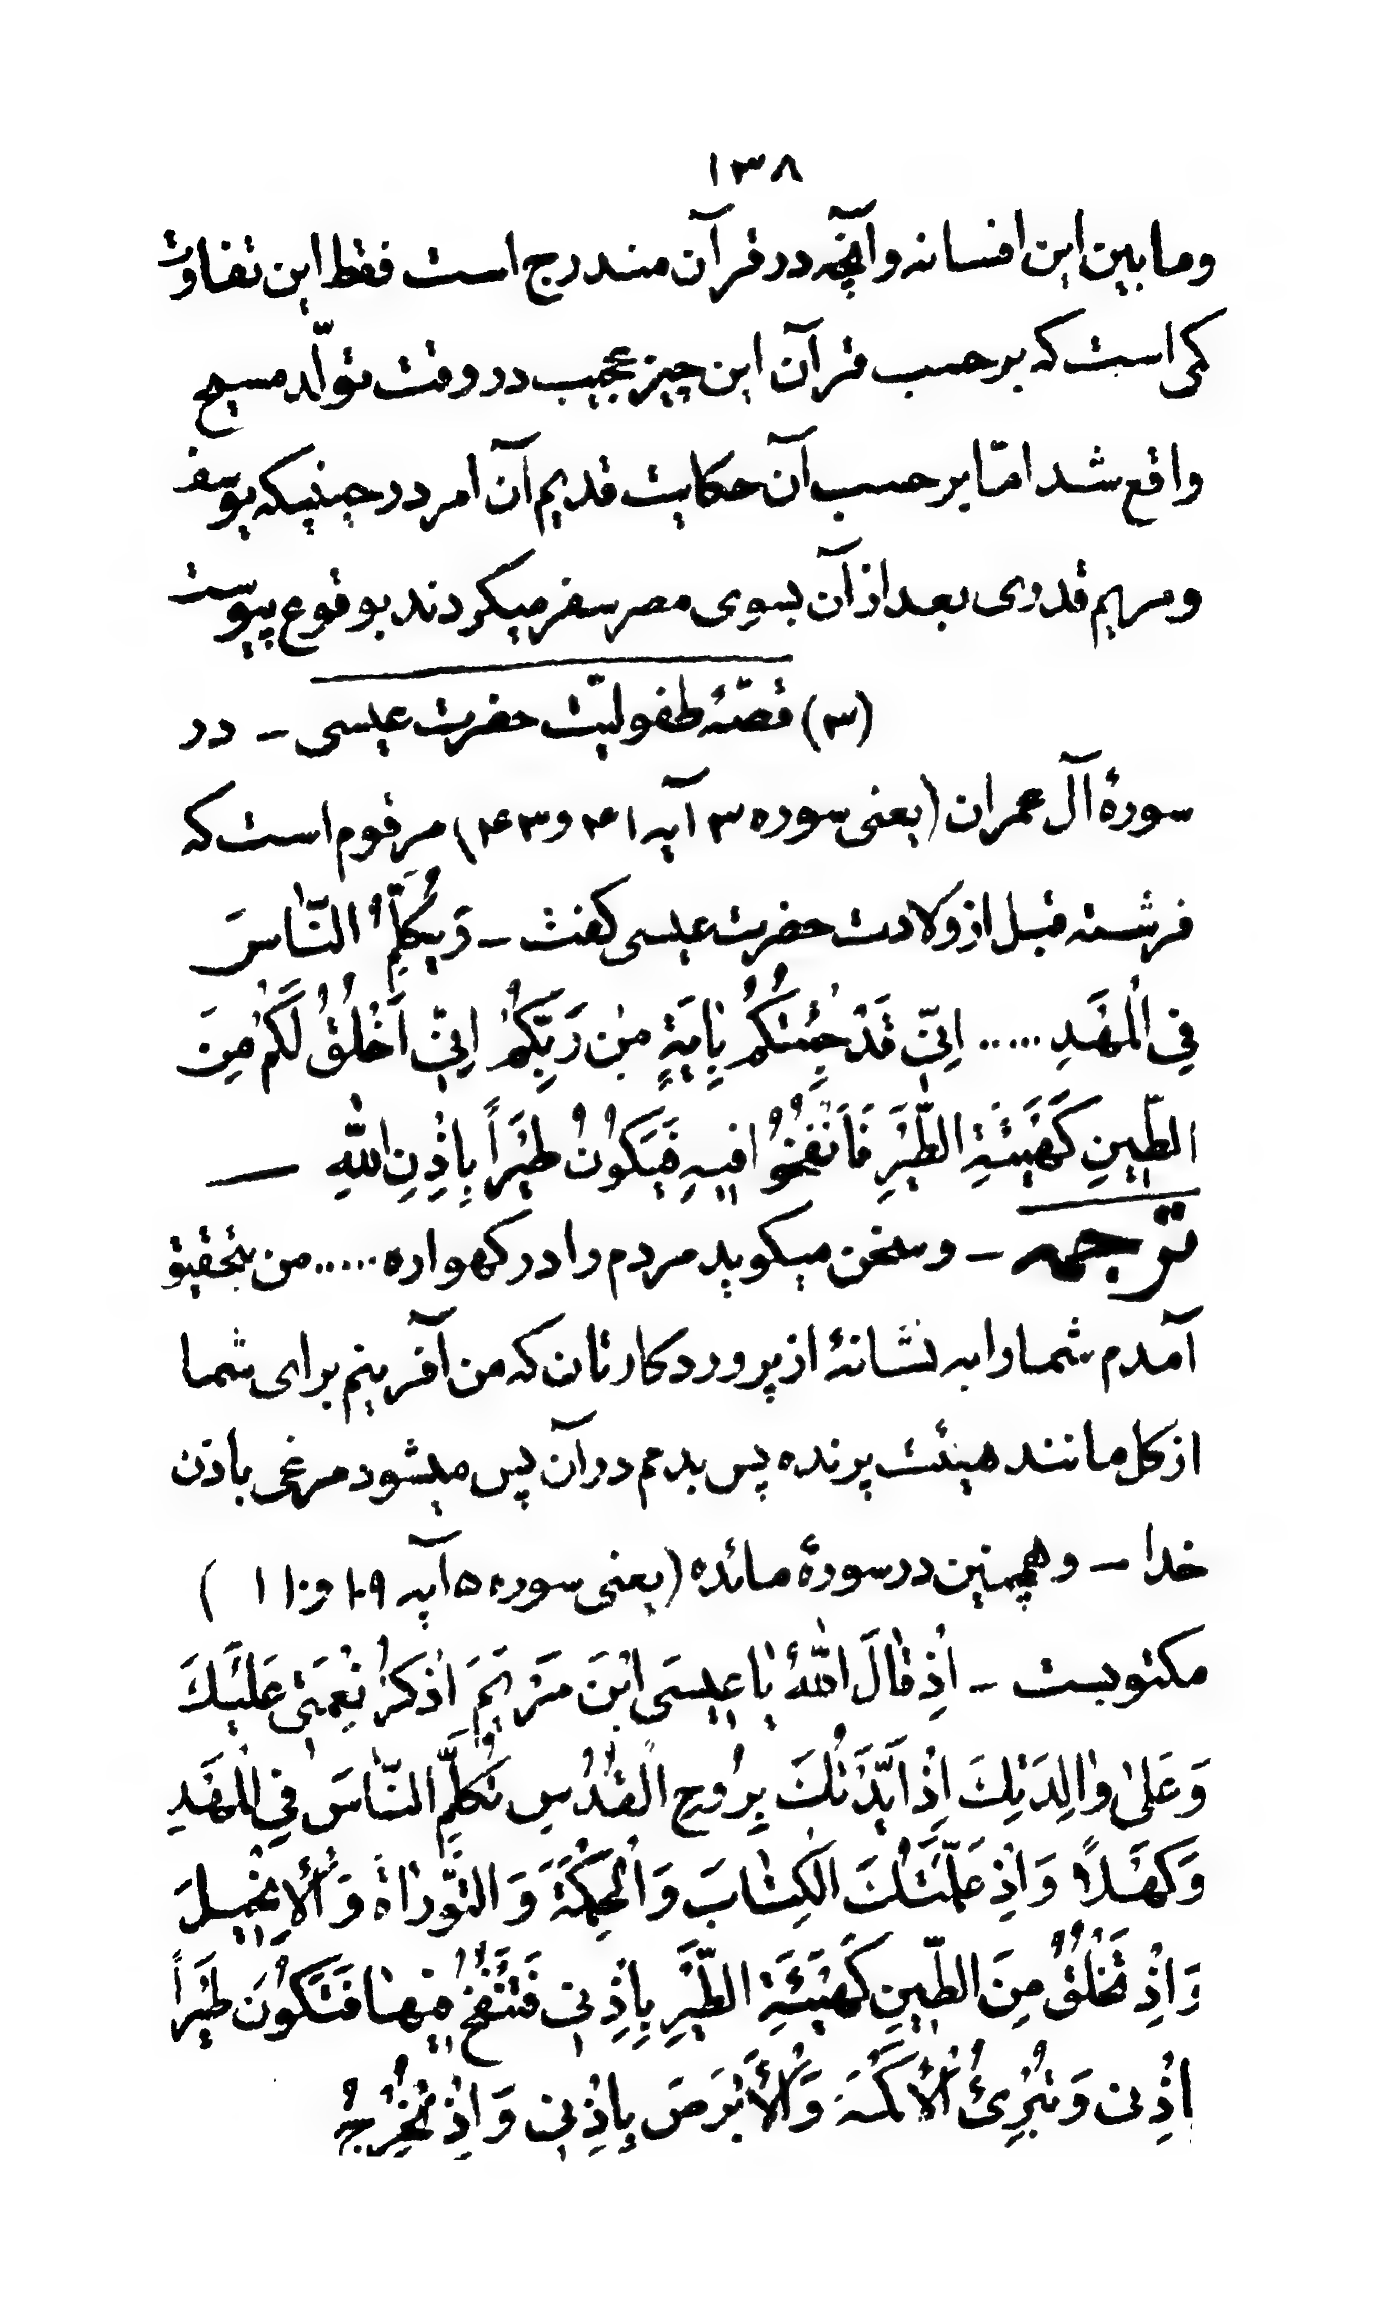 ۱۳۸
وما بین این افسانه و آنچه در قرآن مندرج است فقط این تفاوت
کمی است که بر حسب قرآن این چیز عجیب در وقت تولّد مسیح
واقع شد امّا بر حسب آن حکایت قدیم آن امر در حینیکه یوسف
و مریم قدری بعد از آن بسوی مصر سفر میکردند بوقوع پیوست
(۳) قصّهٔ طفولیّت حضرت عیسی — در
سورهٔ آل عمران (یعنی سوره ۳ آیه ۴۱ و ۴۳) مرقوم است که
فرشته قبل از ولادت حضرت عیسی گفت — وَیُکَلِّمُ النّاسَ
فِی الْمَهْدِ ..... اِنّی قَدْ جِئْتُکُمْ بِایَةٍ مِنْ رَبِّکُمْ اِنّی اَخْلُقُ لَکُمْ مِنَ
الطّینِ کَهَیْئَةِ الطَّیْرِ فَاَنْفُخُ فیهِ فَیَکُونُ طَیْراً بِاِذْنِ اللّٰهِ —
ترجمه — و سخن میگوید مردم را در گهواره ..... من بتحقیق
آمدم شما را به نشانهٔ از پروردگارتان که من آفرینم برای شما
از گل مانند هیئت پرنده پس بدمم در آن پس میشود مرغی باذن
خدا — و همچنین در سورهٔ مائده (یعنی سوره ۵ آیه ۱۰۹ و ۱۱۰)
مکتوبست — اِذْ قالَ اللّٰهُ یا عیسَی ابْنَ مَرْیَمَ اذْکُرْ نِعْمَتی عَلَیْکَ
وَعَلیٰ والِدَتِکَ اِذْ اَیَّدْتُکَ بِرُوحِ الْقُدُسِ تُکَلِّمُ النّاسَ فِی الْمَهْدِ
وَکَهْلاً وَاِذْ عَلَّمْتُکَ الْکِتابَ وَالْحِکْمَةَ وَالتَّوْراةَ وَالْاِنْجیلَ
وَاِذْ تَخْلُقُ مِنَ الطّینِ کَهَیْئَةِ الطَّیْرِ بِاِذْنی فَتَنْفُخُ فیها فَتَکُونُ طَیْراً
بِاِذْنی وَتُبْرِئُ الْاَکْمَهَ وَالْاَبْرَصَ بِاِذْنی وَاِذْ تُخْرِجُ